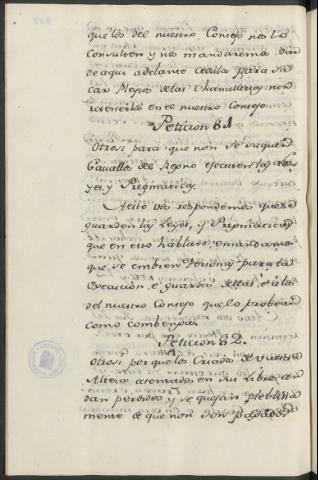 que los del nuestro Consejo nos lo
Consulten y nos mandaremos dar
de aqui adelante Cedula para sa
car Pleytos de las Chancillerias, non
retenerlos en el nuestro Consejo.
Peticion 81.
Otrosi para que non se saquen
Cavallos del Reyno executen las Le
yes, y Pregmaticas.
A esto vos respondemos que se
guarden las Leyes, y Pregmaticas
que en esto hablan, e mandamos
que se embien Personas para la
execucion, e guarda de ellas, e a los
del nuestro Consejo que lo probean
como combenga.
Peticion 82.
Otrosi por que los Criados de Vuestra
Alteza asentados en sus Libros an
dan perdidos, y se quejan
mente de que non son pagados